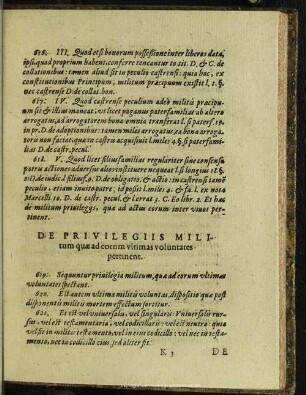 616. III. Quod etsi bonorum possessione inter liberos data,
ipsi, quod proprium habent, conferre teneantur to.tit. D. & C. de
collationibus: tamen aliud sit in peculio castrensi: quia hoc, ex
constitutionibus Principum, militum præcipuum existit l. 1. §.
nec castrense D. de collat. bon.
617. IV. Quod castrense peculium adeò militis præcipu-
um sit & illius maneat: vt licet paganus paterfamiliâs ab altero
arrogatus, ad arrogatorem bona omnia transferat l. si paterf. 15.
in pr. D. de adoptionibus: tamen miles arrogatus, ea bona arroga-
tori non faciat, quæ in castris acquisiuit l. miles 4. §. si paterfami-
liâs D. de castr. pecul.
618. V. Quod licet filiusfamilias regulariter sine consensu
patris actiones aduersus alios instituere nequeat l. si longius 18. §.
D. de iudic. l. filiusf. 9. D. de obligatio. & actio: in castrensi tamen
peculio, etiam inuito patre; id possit l. miles 4. & fa. l. ex nota
Marcelli 10. D. de castr. pecul. & l. errat 3. C. Eo libr. 2. Et hæc
de militum priuilegijs, quæ ad actum eorum inter viuos per-
tinent.
DE PRIVILEGIIS MILI-
tum quæ ad eorum vltimas voluntates
pertinent.
619. Sequuntur priuilegia militum, quæ ad eorum vltimas
voluntates spectant.
620. Est autem vltima militis voluntas, dispositio quæ post
disponentis militis mortem effectum sortitur.
621. Ea est vel vniuersalis, vel singularis: Vniuersalis rur-
sus, vel est testamentaria, vel codicillaris: vel est neutra: quia
vel sit in militis testamento, vel in eius codicillo: vel nec in testa-
mento, nec in codicillo eius, sed aliter sit.
K 3 DE